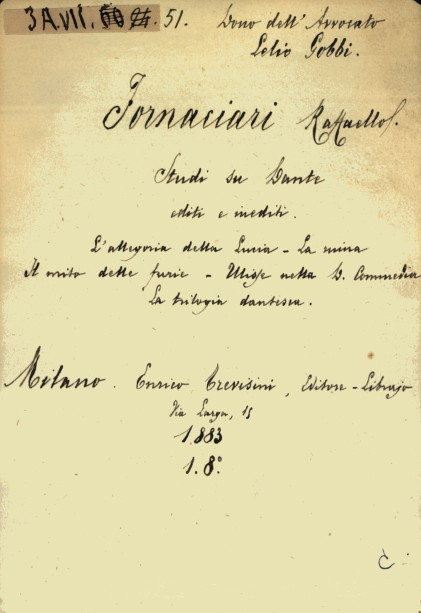 3 A. VII. 51. Dono dell' Avvocato
Lelio Gobbi.
Fornaciari Raffaello.
Studi su Dante
editi e inediti.
L'allegoria della Lucia - La ruina
Il mito delle furie - Ulisse nella D. Commedia
La trilogia dantesca.
Milano. Enrico Trevisini, Editore-Librajo
Via Larga, 15
1883
1. 8°
C